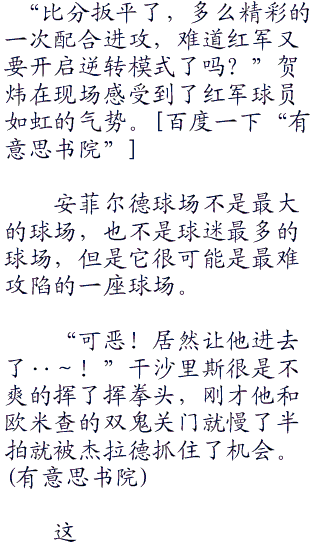 “比分扳平了，多么精彩的
一次配合进攻，难道红军又
要开启逆转模式了吗？”贺
炜在现场感受到了红军球员
如虹的气势。[百度一下“有
意思书院”]
安菲尔德球场不是最大
的球场，也不是球迷最多的
球场，但是它很可能是最难
攻陷的一座球场。
“可恶！居然让他进去
了··~！”干沙里斯很是不
爽的挥了挥拳头，刚才他和
欧米查的双鬼关门就慢了半
拍就被杰拉德抓住了机会。
(有意思书院)
这